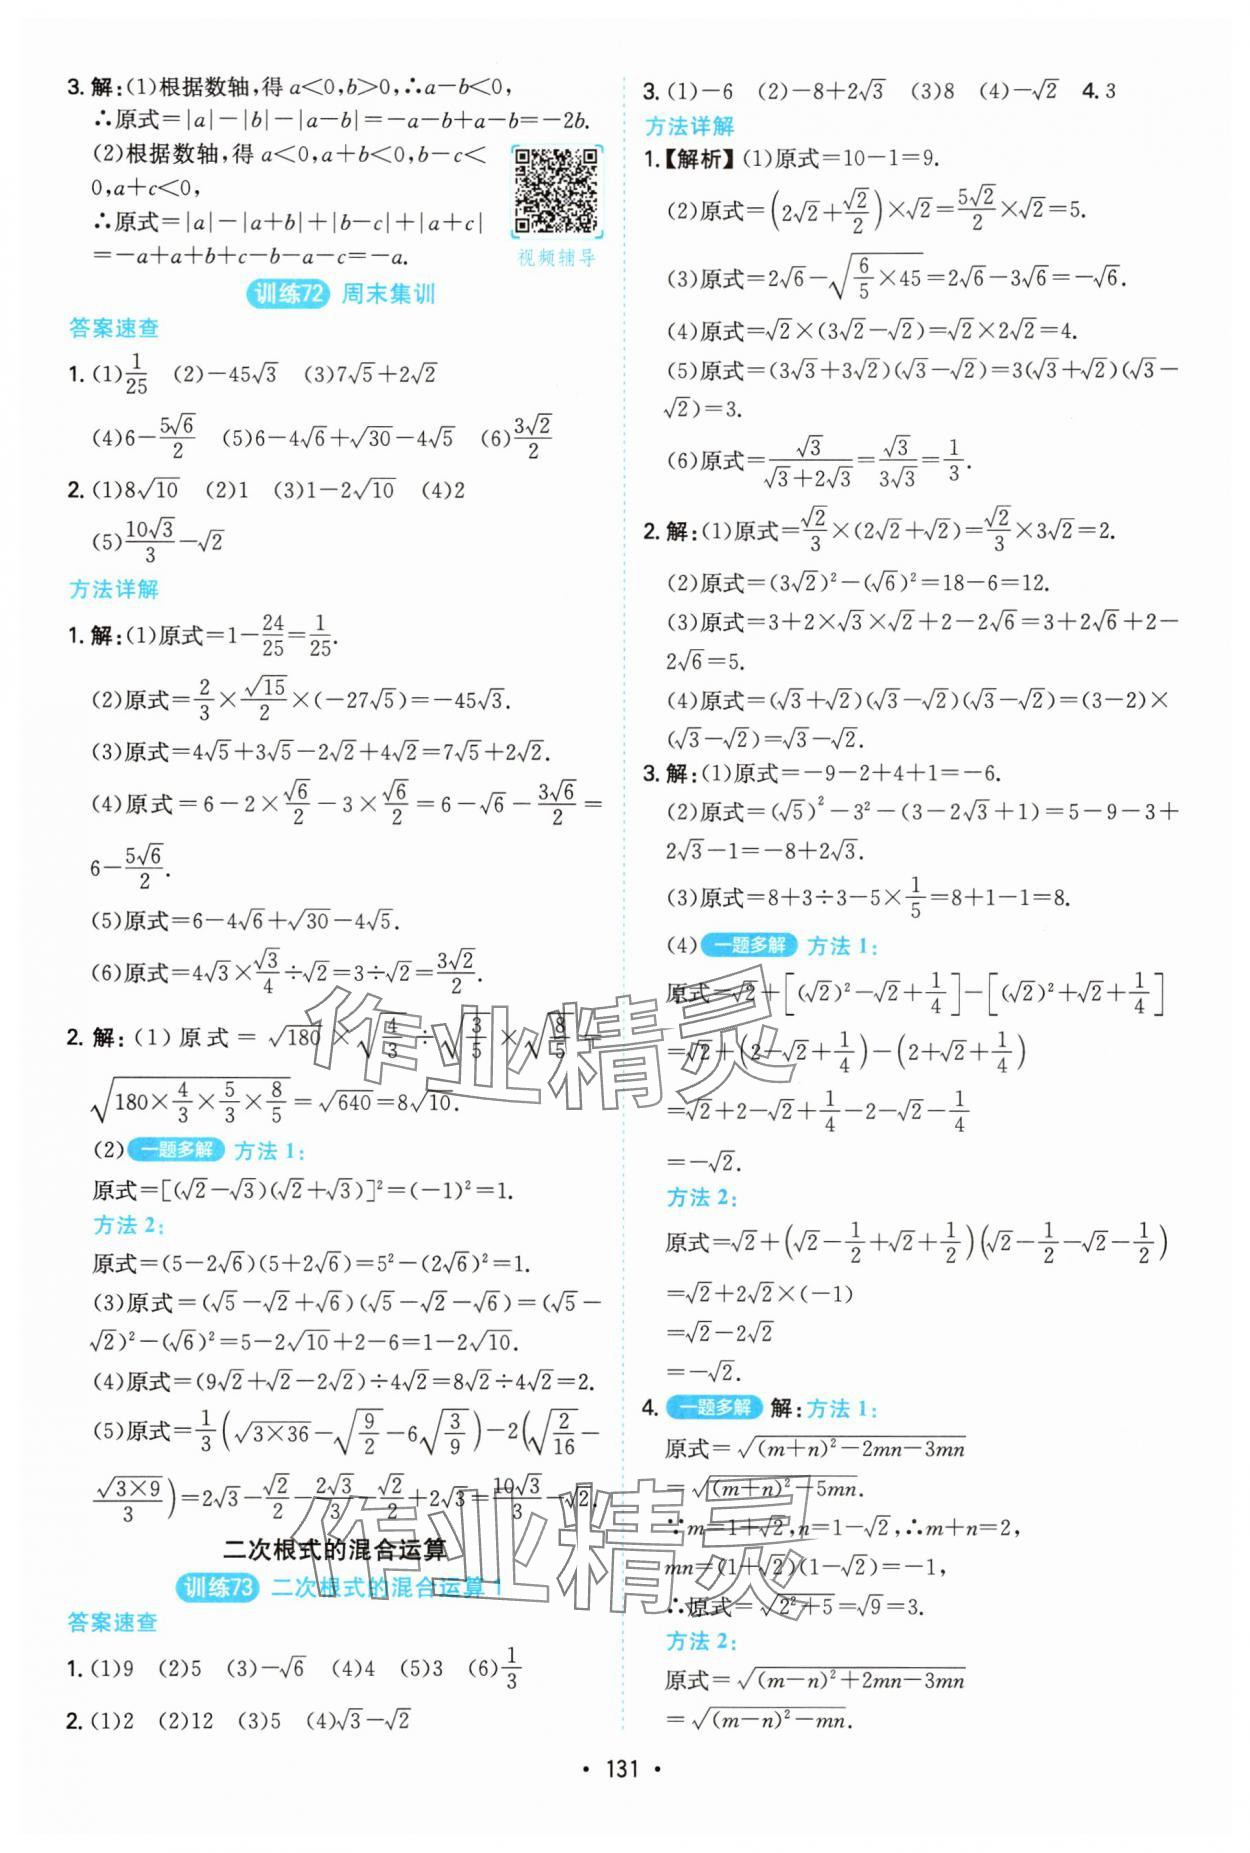 3. 解:(1)根据数轴,得 a<0,b>0,∴a-b<0,
∴原式=|a|-|b|-|a-b|=-a-b+a-b=-2b.
(2)根据数轴,得 a<0,a+b<0,b-c<
0,a+c<0,
∴原式=|a|-|a+b|+|b-c|+|a+c|
=-a+a+b+c-b-a-c=-a.
视频辅导
训练72 周末集训
答案速查
1. (1)1/25 (2)-45√3 (3)7√5+2√2
(4)6-5√6/2 (5)6-4√6+√30-4√5 (6)3√2/2
2. (1)8√10 (2)1 (3)1-2√10 (4)2
(5)10√3/3-√2
方法详解
1. 解:(1)原式=1-24/25=1/25.
(2)原式=2/3×√15/2×(-27√5)=-45√3.
(3)原式=4√5+3√5-2√2+4√2=7√5+2√2.
(4)原式=6-2×√6/2-3×√6/2=6-√6-3√6/2=
6-5√6/2.
(5)原式=6-4√6+√30-4√5.
(6)原式=4√3×√3/4÷√2=3÷√2=3√2/2.
2. 解:(1)原式=√180×√(4/3)÷√(3/5)×√(8/5)=
√(180×4/3×5/3×8/5)=√640=8√10.
(2) 一题多解 方法 1:
原式=[(√2-√3)(√2+√3)]²=(-1)²=1.
方法 2:
原式=(5-2√6)(5+2√6)=5²-(2√6)²=1.
(3)原式=(√5-√2+√6)(√5-√2-√6)=(√5-
√2)²-(√6)²=5-2√10+2-6=1-2√10.
(4)原式=(9√2+√2-2√2)÷4√2=8√2÷4√2=2.
(5)原式=1/3(√(3×36)-√(9/2)-6√(3/9))-2(√(2/16)-
√(3×9)/3)=2√3-√2/2-2√3/3-√2/2+2√3=10√3/3-√2.
二次根式的混合运算
训练73 二次根式的混合运算 1
答案速查
1. (1)9 (2)5 (3)-√6 (4)4 (5)3 (6)1/3
2. (1)2 (2)12 (3)5 (4)√3-√2
3. (1)-6 (2)-8+2√3 (3)8 (4)-√2 4. 3
方法详解
1.【解析】(1)原式=10-1=9.
(2)原式=(2√2+√2/2)×√2=5√2/2×√2=5.
(3)原式=2√6-√(6/5×45)=2√6-3√6=-√6.
(4)原式=√2×(3√2-√2)=√2×2√2=4.
(5)原式=(3√3+3√2)(√3-√2)=3(√3+√2)(√3-
√2)=3.
(6)原式=√3/(√3+2√3)=√3/3√3=1/3.
2. 解:(1)原式=√2/3×(2√2+√2)=√2/3×3√2=2.
(2)原式=(3√2)²-(√6)²=18-6=12.
(3)原式=3+2×√3×√2+2-2√6=3+2√6+2-
2√6=5.
(4)原式=(√3+√2)(√3-√2)(√3-√2)=(3-2)×
(√3-√2)=√3-√2.
3. 解:(1)原式=-9-2+4+1=-6.
(2)原式=(√5)²-3²-(3-2√3+1)=5-9-3+
2√3-1=-8+2√3.
(3)原式=8+3÷3-5×1/5=8+1-1=8.
(4) 一题多解 方法 1:
原式=√2+[(√2)²-√2+1/4]-[(√2)²+√2+1/4]
=√2+(2-√2+1/4)-(2+√2+1/4)
=√2+2-√2+1/4-2-√2-1/4
=-√2.
方法 2:
原式=√2+(√2-1/2+√2+1/2)(√2-1/2-√2-1/2)
=√2+2√2×(-1)
=√2-2√2
=-√2.
4. 一题多解 解:方法 1:
原式=√((m+n)²-2mn-3mn)
=√((m+n)²-5mn).
∵m=1+√2,n=1-√2,∴m+n=2,
mn=(1+√2)(1-√2)=-1,
∴原式=√(2²+5)=√9=3.
方法 2:
原式=√((m-n)²+2mn-3mn)
=√((m-n)²-mn).
• 131 •
作业精灵
作业精灵